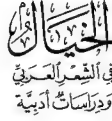 الخيال
في الشعر العربي
ودراسات أدبية